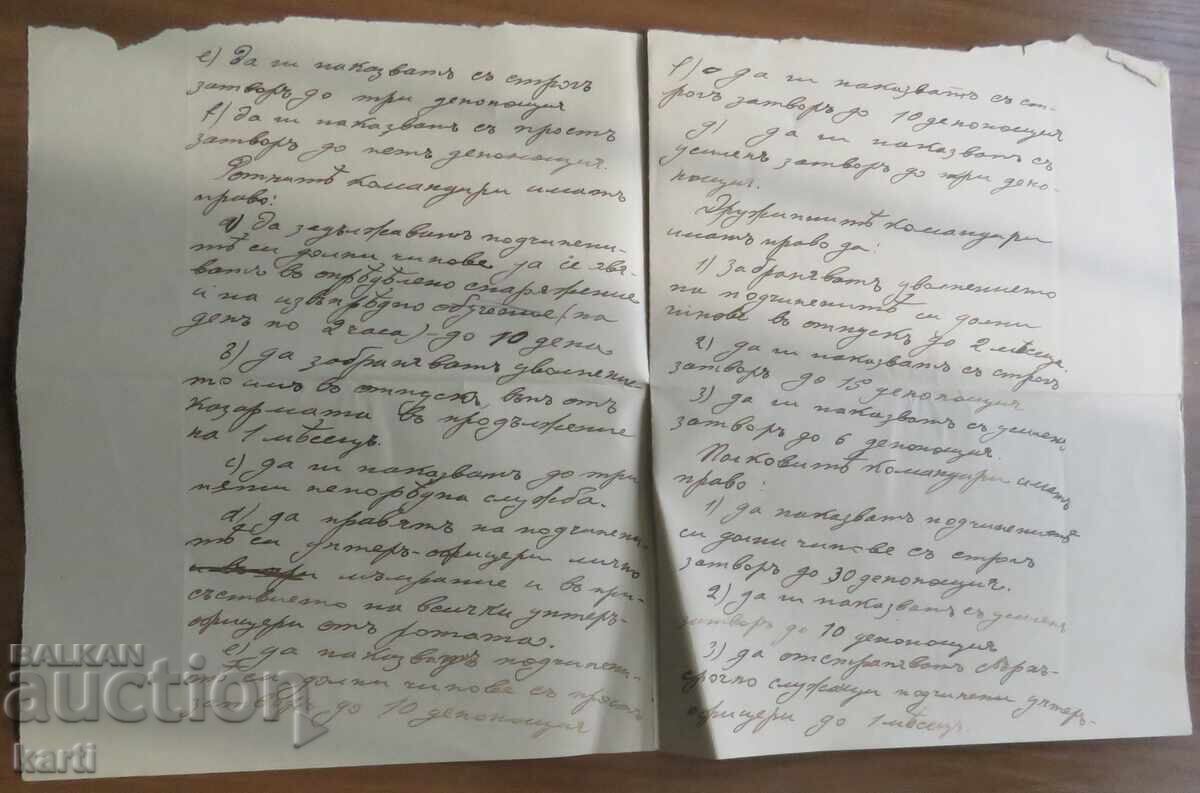 е) Да ги наказватъ съ строгъ
затворъ до три денонощия
f) Да ги наказватъ съ простъ
затворъ до петъ денонощия.
Ротнитѣ командири иматъ
право:
а) Да задължаватъ подчинени-
тѣ си долни чинове да се явя-
ватъ въ опрѣдѣлено снаряжение
и на извънрѣдно обучение (на
день по 2 часа) - до 10 дена
в) да забраняватъ уволнение
то имъ въ отпускъ, вънъ отъ
казармата въ продължение
на 1 мѣсецъ.
с) да ги наказватъ до три
пѫти ненарѣдна служба.
d) да правятъ на подчинени-
тѣ си унтеръ-офицери лично
мъмрание и въ при-
съствието на всички унтеръ-
офицери отъ ротата.
е) да наказватъ подчинени-
тѣ си долни чинове съ простъ
затворъ до 10 денонощия
f) да ги наказватъ съ ст-
рогъ затворъ до 10 денонощия
g) да ги наказватъ съ
усиленъ затворъ до три дено-
нощия.
Дружинитѣ командири
иматъ право да:
1) Забраняватъ уволнението
на подчиненитѣ си долни
чинове въ отпускъ до 2 мѣсеца.
2) да ги наказватъ съ строгъ
затворъ до 15 денонощия
3) да ги наказватъ съ усиленъ
затворъ до 6 денонощия.
Полковитѣ командири иматъ
право:
1) да наказватъ подчиненитѣ
си долни чинове съ строгъ
затворъ до 30 денонощия.
2) да ги наказватъ съ усиленъ
затворъ до 10 денонощия
3) да отстраняватъ свръх-
срочно служащи подчинени унтеръ-
офицери до 1 мѣсецъ.
BALKAN
auction
karti